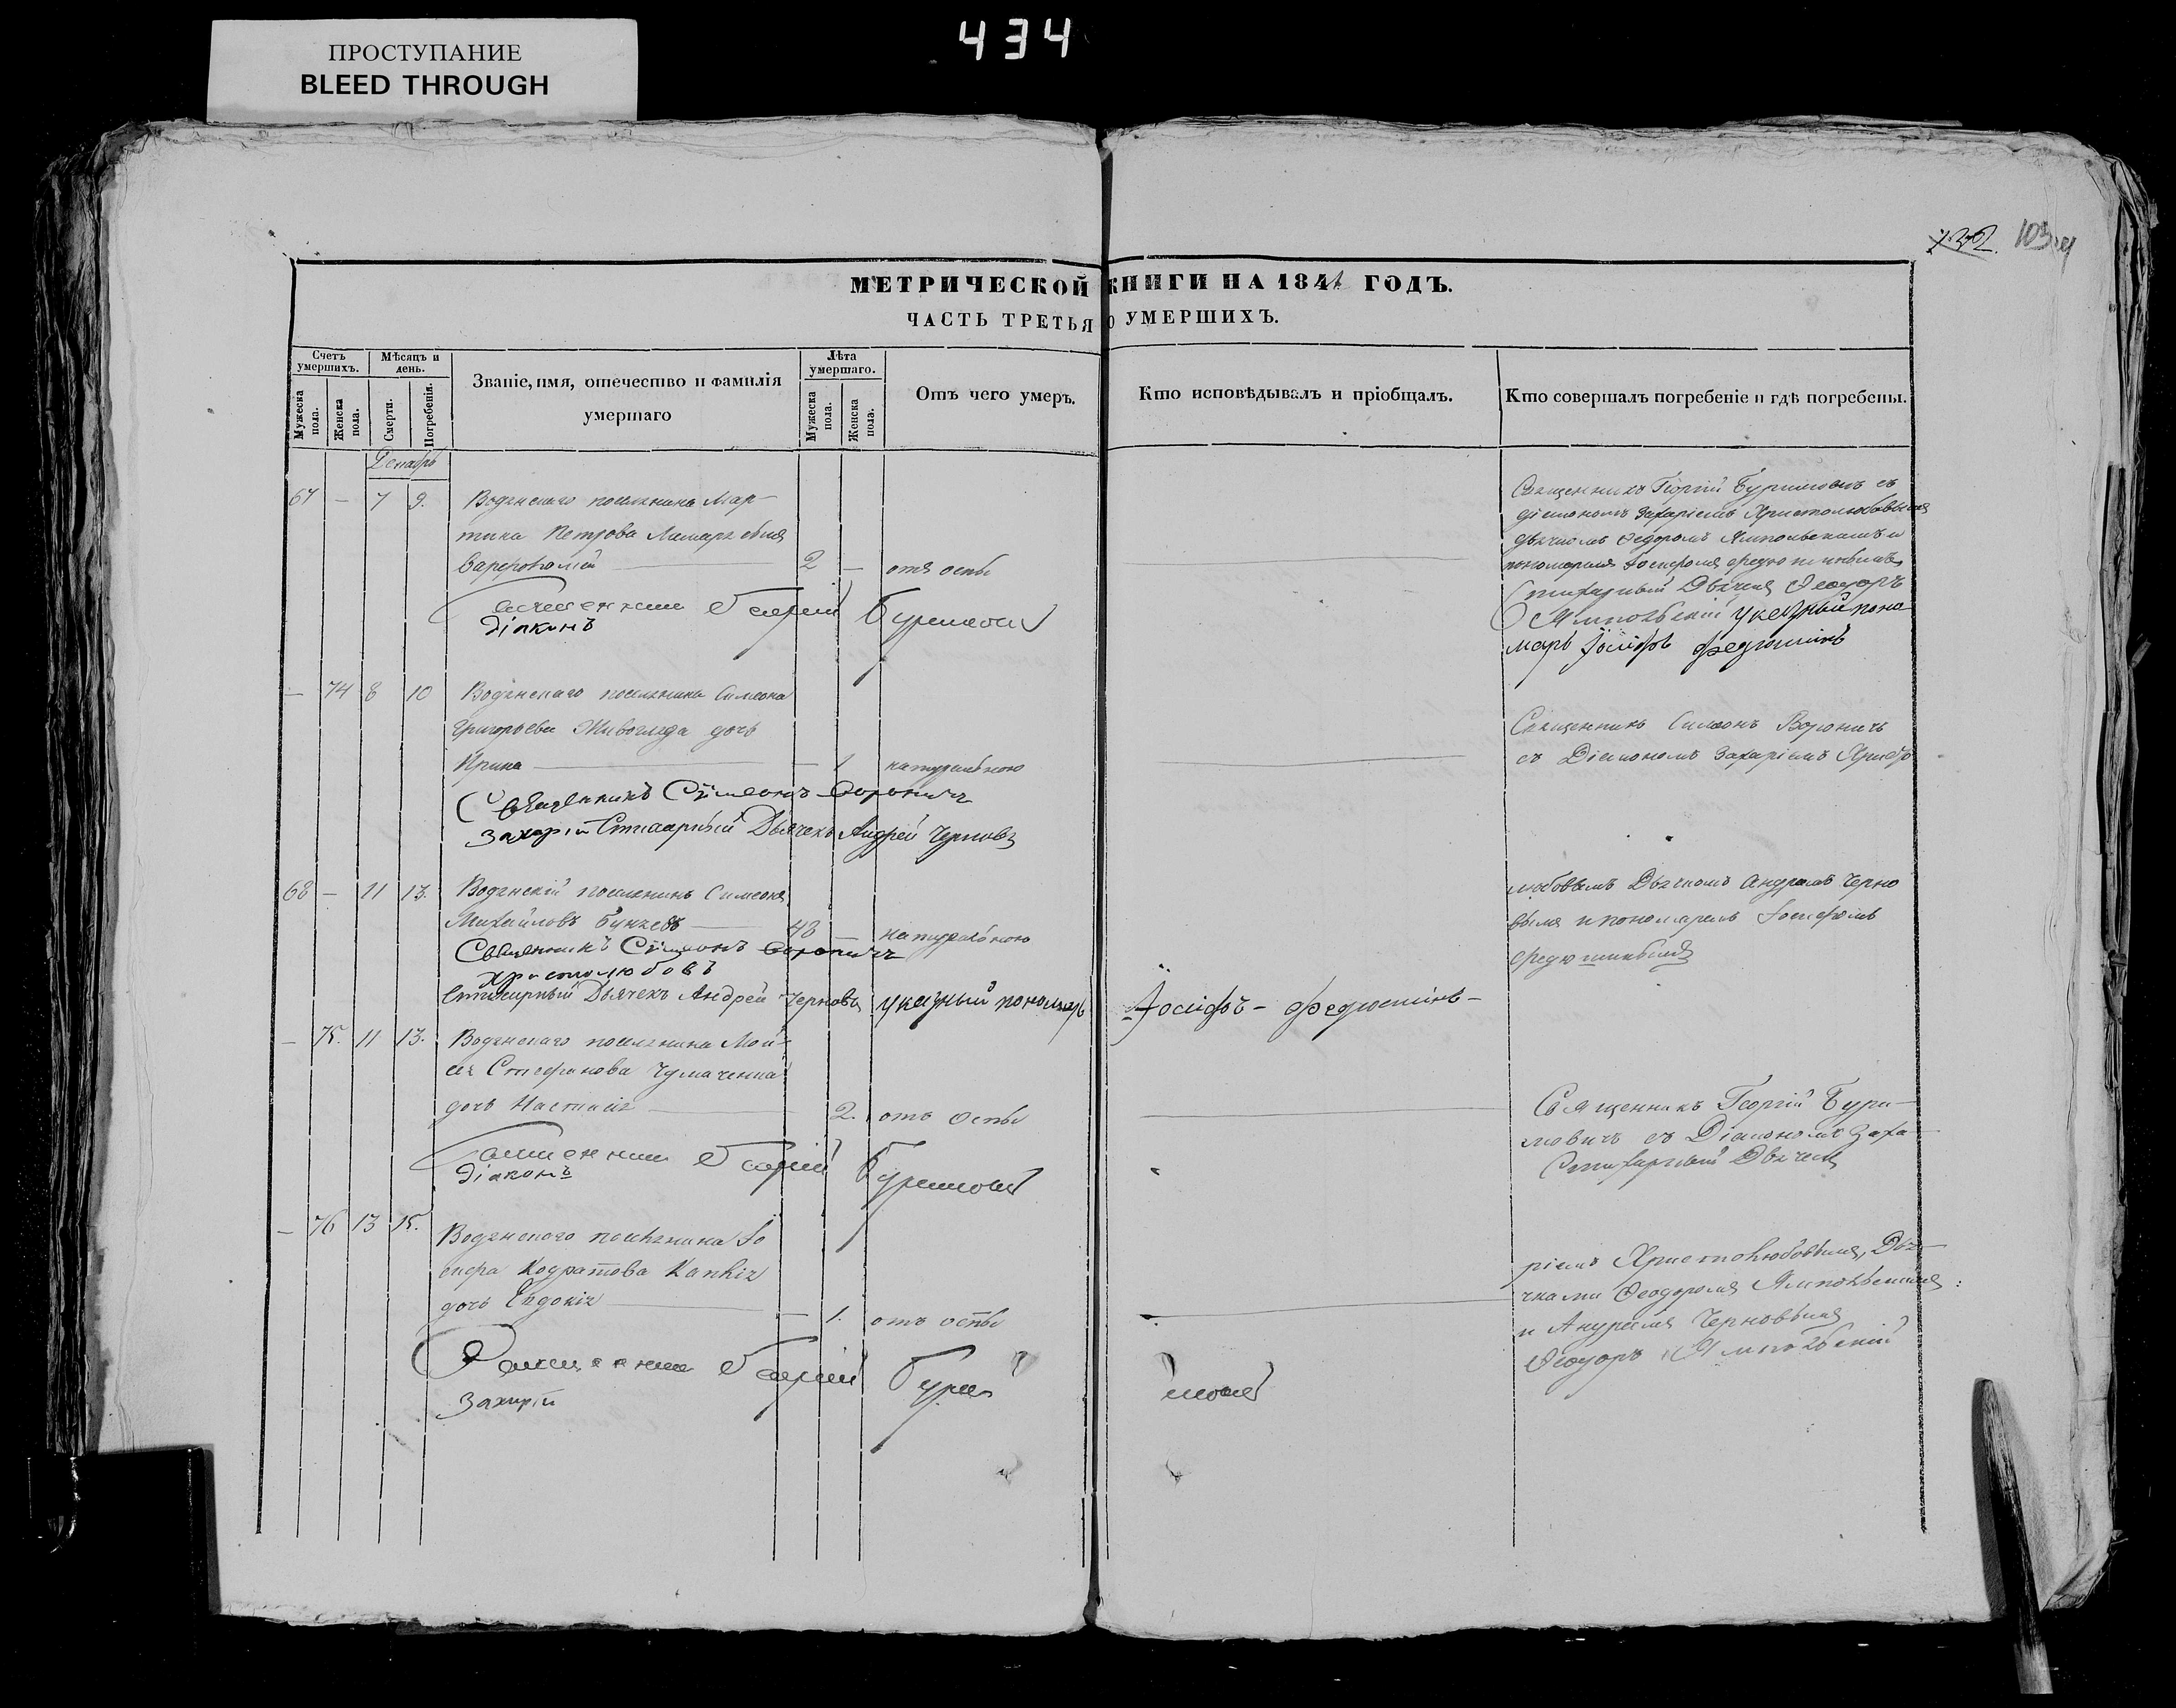 ПРОСТУПАНИЕ
BLEED THROUGH
434
132. 103
МЕТРИЧЕСКОЙ КНИГИ НА 1841 ГОДЪ.
ЧАСТЬ ТРЕТЬЯ О УМЕРШИХЪ.
Счетъ умершихъ.
Мужеска пола.
Женска пола.
Мѣсяцъ и день.
Смерти.
Погребенія.
Званіе, имя, отечество и фамилія умершаго
Лѣта умершаго.
Мужеска пола.
Женска пола.
Отъ чего умеръ.
Кто исповѣдывалъ и пріобщалъ.
Кто совершалъ погребеніе и гдѣ погребены.
Декабрь
67 – 7 9. Водянскаго поселянина Мар-
тина Петрова сынъ
Варфоломей 2 – отъ оспы
Священникъ Георгій
Діаконъ
Священникъ Георгій съ
діакономъ Захаріемъ Христолюбовымъ
дьячкомъ Ѳедоромъ Ямпольскимъ и
пономаремъ Іосифомъ Федюшинымъ
Стихарный Дьячекъ Ѳеодоръ
Ямпольскій указный поно
марь Іосифъ Федюшинъ
– 74 8 10 Водянскаго поселянина Симеона
Григорьева Живогляда дочь
Ирина – 1 натуральною
Священникъ Сүмеонъ Вороничъ
Захарій Стихарный Дьячекъ Андрей Черновъ
Священникъ Симеонъ Вороничъ
съ Діакономъ Захаріемъ Христо
68 – 11 13. Водянскій поселянинъ Симеонъ
Михайловъ 48 натуральною
Священникъ Сүмеонъ Вороничъ
Христолюбовъ
Стихарный Дьячекъ Андрей Черновъ указный пономарь Іосифъ – Федюшинъ –
любовымъ Дьячкомъ Андреемъ Черно
вымъ и пономаремъ Іосифомъ
Федюшинымъ
– 75. 11 13. Водянскаго поселянина Мой-
сея Стефанова Чумаченка
дочь Настасія 2. отъ оспы
Священникъ Георгій
Діаконъ
Священникъ Георгій Бури-
мовичъ съ Діакономъ Заха-
Стихарный Дьячекъ
– 76 13 15. Водянскаго поселянина Іо
сифа Кодратова
дочь Евдокія – 1. отъ оспы
Священникъ Георгій
Захарій
ріемъ Христолюбовымъ, Дья-
чками Ѳеодоромъ Ямпольскимъ
и Андреемъ Черновымъ
Ѳеодоръ Ямпольскій